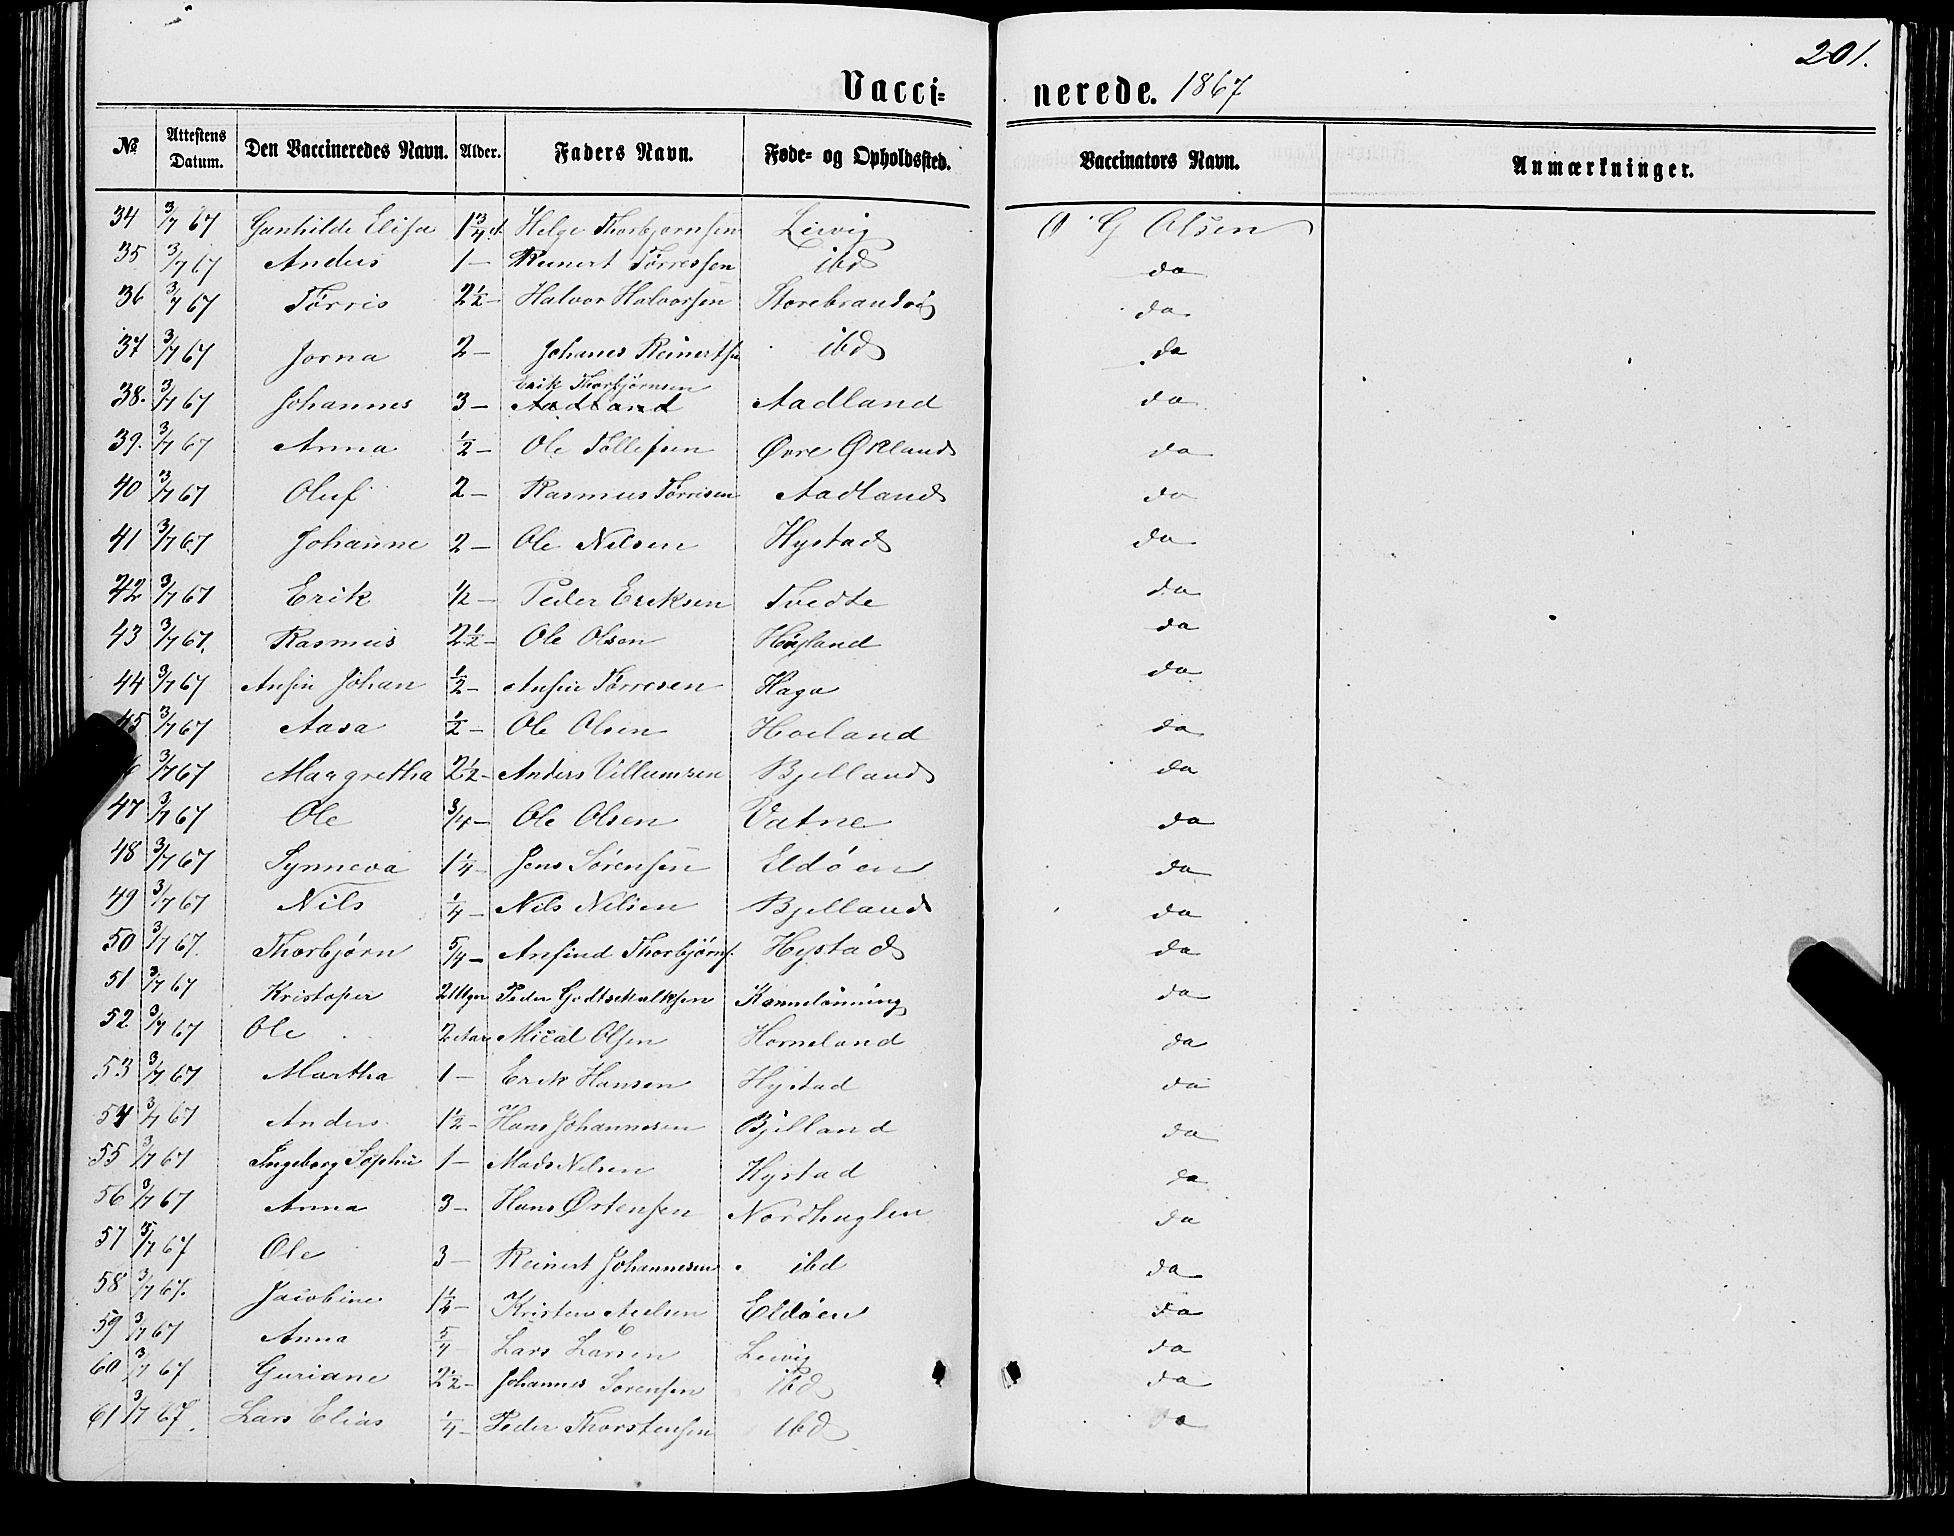 201.
Vaccinerede. 1867
№ Attestens Datum. Den Vaccineredes Navn. Alder. Faders Navn. Føde= og Opholdssted. Vaccinators Navn. Anmærkninger.
34 3/7 67 Gunhilde Elisa 1 3/4 Helge Thorbjørnsen Leivig O G Olsen
35 3/7 67 Anders 1 — Reinert Tørressen ibd do
36 3/7 67 Tørris 2 1/2 — Halvor Halvorsen do
37 3/7 67 Jorna 2 — Johanes Reinertsn ibd do
38. 3/7 67 Johannes 3 — Erik Thorbjörnsen Aadland Aadland do
39. 3/7 67 Anna 1/2 — Ole Tollefsen Øvre Økland do
40 3/7 67 Oluf 2 — Rasmus Törrisen Aadland do
41 3/7 67 Johanne 2 — Ole Nilsen Hystad do
42 3/7 67 Erik 1/2 — Peder Eriksen Tvedte do
43 3/7 67. Rasmus 2 1/2 — Ole Olsen Høyland do
44 3/7 67 Ansin Johan 1/2 — Ansin Tørresen Haga do
45 3/7 67 Aasa 1/2 — Ole Olsen Hovland do
6 3/7 67 Margretha 2 1/2 — Anders Villumsen Bjelland do
47 3/7 67 Ole 3/4 — Ole Olsen Vatne do
48 3/7 67 Synneva 1 1/4 — Jens Sørensen Eldøen do
49 3/7 67 Nils 1/4 — Nils Nilsen Bjelland do
50 3/7 67. Thorbjørn 5/4 — Ansind Thorbjørns. Hystad do
51 3/7 67 Kristofer 2 Ugr Peder Godtschalksen do
52 3/7 67 Ole 2 Aar Micäl Olsen Horneland do
53 3/7 67 Martha 1 — Erik Hansen Hystad do
54 3/7 67 Anders 1 1/2 — Hans Johannesen Bjelland do
55 3/7 67 Ingeborg Sophie 1 — Mads Nilsen Hystad do
56 3/7 67 Anna 3 — Hans Østensen Nordhuglen do
57 3/7 67 Ole 3 — Reinert Johannesen ibd do
58 3/7 67. Jacobine 1 1/2 — Kristen Eldøen do
59 3/7 67 Anna 5/4 — Lars Larsen Leivig do
60 3/7 67 Guriane 2 1/2 — Johannes Sørensen ibd do
61 3/7 67. Lars Elias 1/4 — Peder Thorstensen ibd do